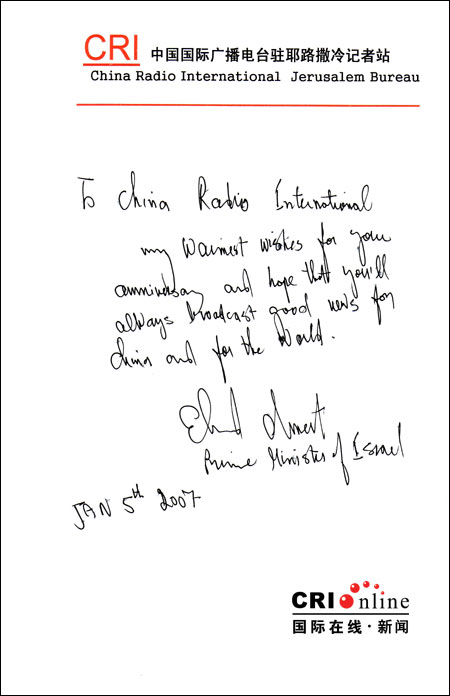 CRI 中国国际广播电台驻耶路撒冷记者站
China Radio International Jerusalem Bureau
To China Radio International
my warmest wishes for your
anniversary and hope that you'll
always broadcast good news for
China and for the World.
Ehud Olmert
Prime Minister of Israel
JAN 5th 2007
CRI Online
国际在线·新闻